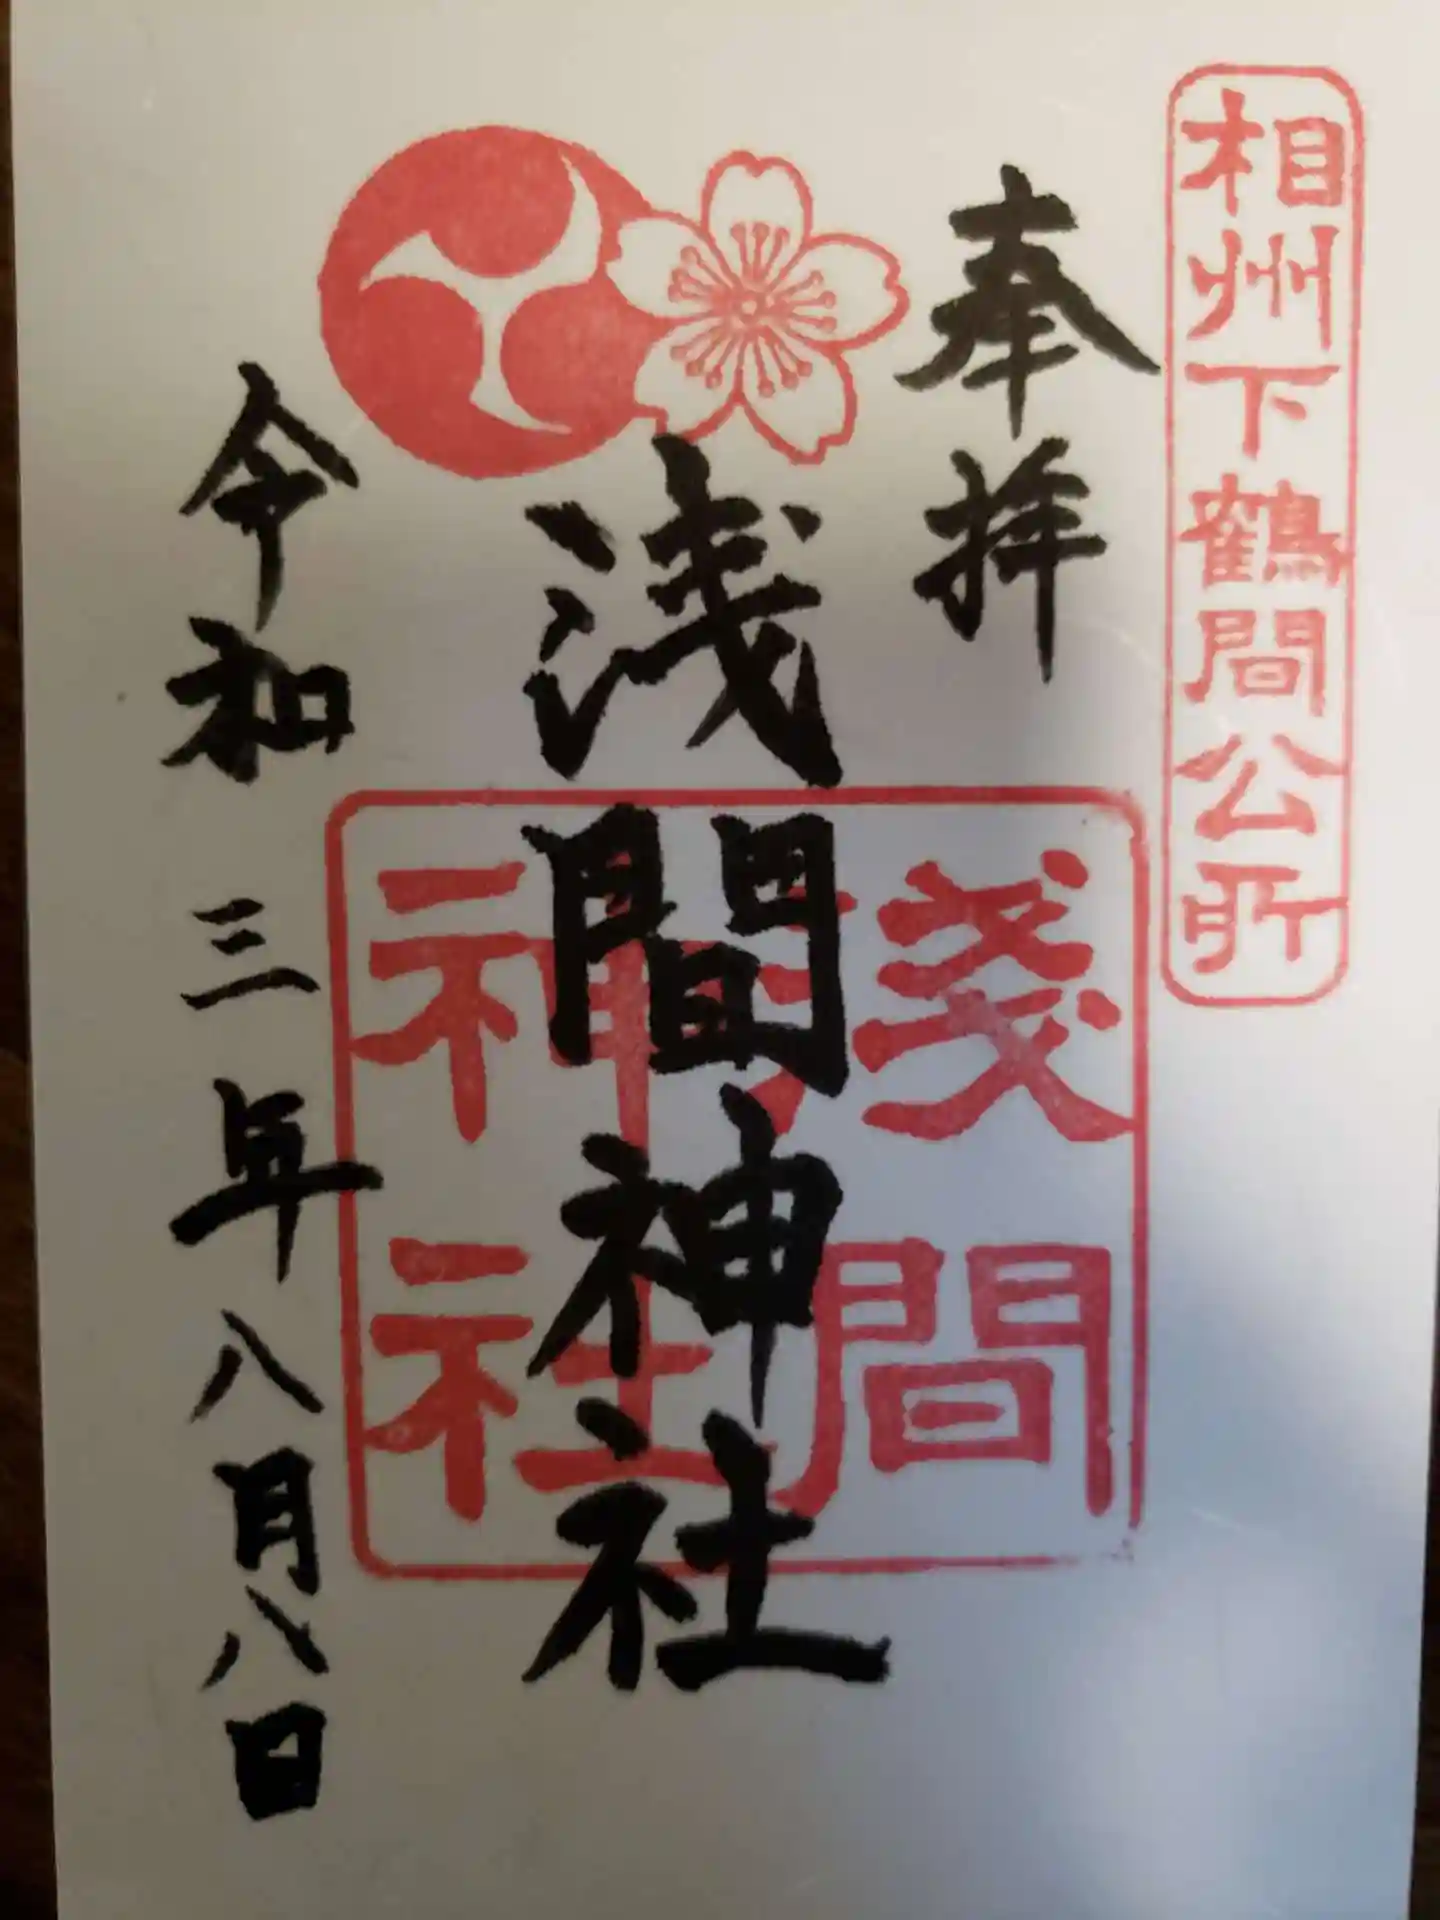 相州下鶴間公所
奉拝
浅間神社
淺間
神社
令和三年八月八日